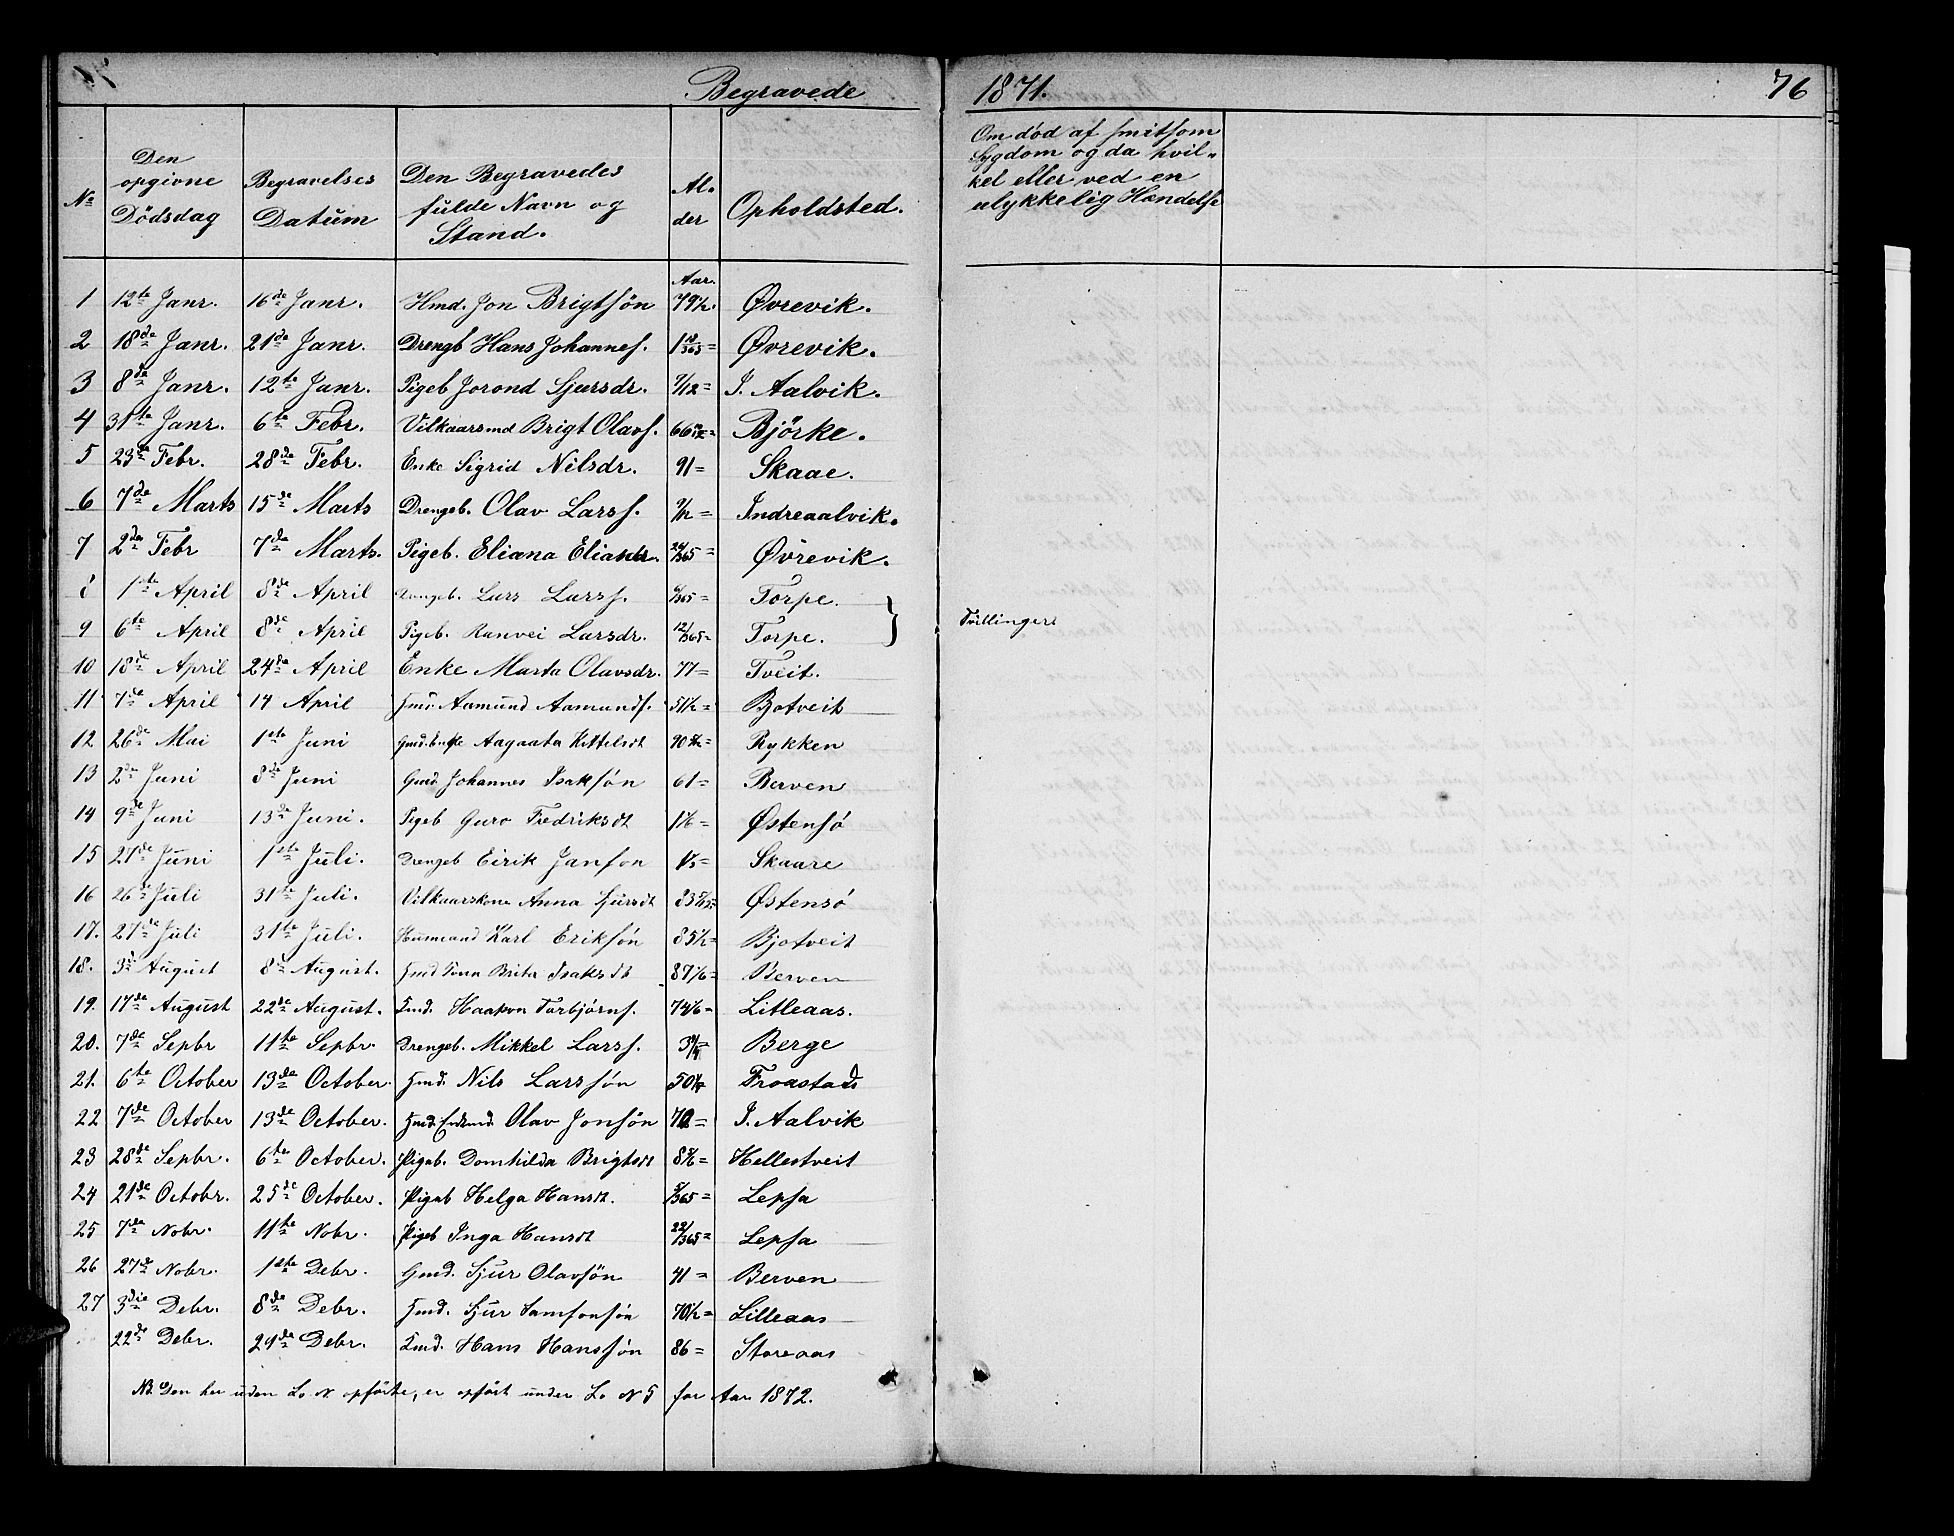 Begravede 1871. 76
№ Den opgivne Dödsdag Begravelses Datum Den Begravedes fulde Navn og Stand. Al. der Opholdsted. Om död af smitsom Sygdom og da hvil„ kel eller ved en ulykkelig Hændelse
Aar.
1 12te Janr. 16de Janr. Hmd. Jon Brigtsön 79½. Øvrevik.
2 18de Janr. 21de Janr. Drengb Hans Johannes. 1 10/365 = Øvrevik.
3 8de Janr. 12te Janr. Pigeb Jorond Sjursdr. 7/12 = I. Aalvik.
4 31te Janr. 6te Febr. Vilkaarsmd Brigt Olavs. 66 = Björke.
5 23de Febr. 28de Febr. Enke Sigrid Nilsdr. 91 = Skaae.
6 7de Marts 15de Marts Drengeb. Olav Larss. = Indreaalvik.
7 2den Febr 7de Marts. Pigeb. Eliana 24/365 = Øvrevik.
8 1ste April 8de April Drengeb. Lars Larss. 6/365 = Torpe. }
9 6te April 8de April Pigeb. Ranvei Larsdr. 12/365 = Torpe. } Tvillinger
10 18de April 24de April Enke Marta Olavsdr. 77 = Tveit.
11 7de April 14 April Hmd. Aamund Aamunds. 51½ = Bjotveit
12 26de Mai 1ste Juni Gmd. Enke Aagaata Kittelsdt 90 = Rykken
13 2den Juni 8de Juni Gmd. Johannes Isaksön 61 = Berven
14 9de Juni 13de Juni. Pigeb Guro Fredriksdt = Østensö
15 27de Juni 1ste Juli. Drengeb Eirik Janson = Skaare
16 26de Juli 31te Juli. Vilkaarskone Anna Sjursdt 83 = Østensö
17. 27de Juli 31te Juli. Husmand Karl Eriksön 85½ = Bjotveit
18. 3die August 8de August. Hmd Kona Brita Isaksdt 87 1/6 = Berven
19. 17de August 22de August. Hmd. Haakon Torbjörns. 74 1/6 = Litleaas.
20. 7de Sepbr 11te Sepbr. Drengeb. Mikkel Larss. = Berge
21. 6te October 13de October. Hmd. Nils Larssön 50 = Froastad
22 7de October 13de October. Hmd. Olav Jonsön = I. Aalvik
23 28de Sepbr. 6te October. Pigeb. Domhilda Brigtsdt = Hellestveit
24 21de Octobr. 25de October. Pigeb Helga Hansdt. 5/365 = Lepsa
25 7de Nobr. 11te Nobr. Pigeb Inga Hansdt 22/365 = Lepsa
26 27de Nobr. 1ste Debr. Gmd. Sjur Olavsön 41 = Berven
27 3die Debr. 8de Debr. Hmd. Sjur Samsonsön 70½ = Lilleaas
22de Debr. 29de Debr. Hans Hanssön 86 = Storeaas
NB. Den her uden Lo N opförte, er opfört under Lo N 5 for Aar 1872.